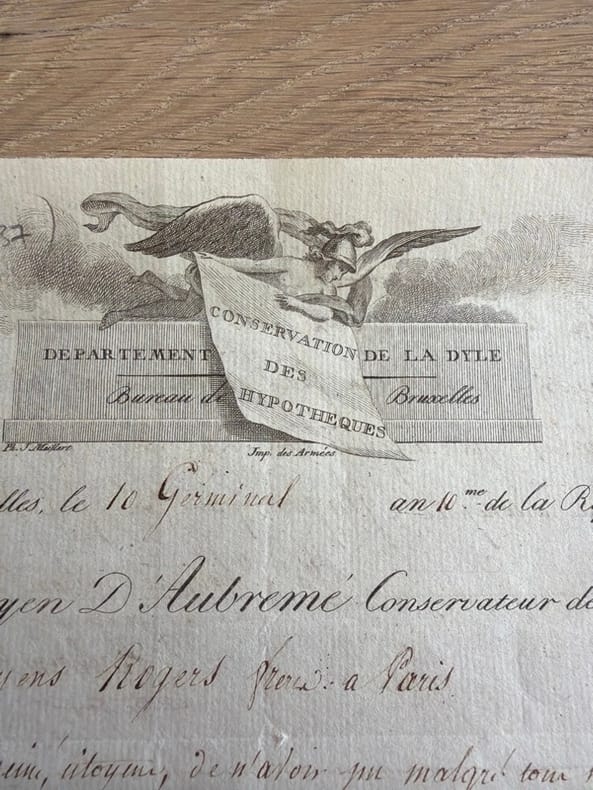 37
CONSERVATION
DES
HYPOTHEQUES
DEPARTEMENT DE LA DYLE
Bureau de Bruxelles
Ph. J. Maillart Imp. des Armées
lles, le 10 Germinal an 10.me de la R
yen D'Aubremé Conservateur de
yens Rogers frères à Paris
citoyens, de n'avoir pu malgré tous